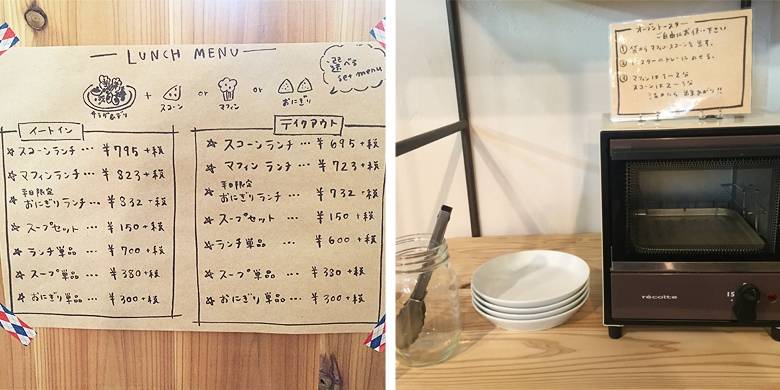 LUNCH MENU
選べる
set menu
サラダ&デリ + スコーン or マフィン or おにぎり
イートイン
☆ スコーンランチ … ¥795+税
☆ マフィンランチ … ¥823+税
平日限定
☆ おにぎりランチ … ¥832+税
☆ スープセット … ¥150+税
☆ ランチ単品 … ¥700+税
☆ スープ単品 … ¥380+税
☆ おにぎり単品 … ¥300+税
テイクアウト
☆ スコーンランチ … ¥695+税
☆ マフィンランチ … ¥723+税
平日限定
☆ おにぎりランチ … ¥732+税
☆ スープセット … ¥150+税
☆ ランチ単品 … ¥600+税
☆ スープ単品 … ¥330+税
☆ おにぎり単品 … ¥300+税
オーブントースター
ご自由にお使い下さい
① 袋からマフィン、スコーンを出す。
② トースターのトレーにのせる。
③ マフィンは1~2分
スコーンは2~3分
温めたら出来あがり!!
récolte
15